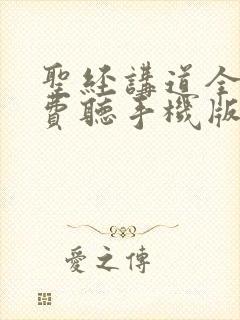 聖經講道全
費聽手機版
愛之傳